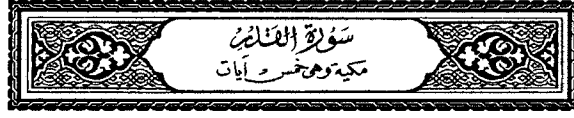 سورة القدر
مكية وهى خمس آيات